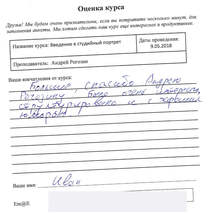 Оценка курса
Друзья! Мы будем очень признательны, если вы потратите несколько минут для
заполнения анкеты. Мы хотим сделать наш курс еще интереснее и продуктивнее.
Название курса: Введение в студийный портрет
Дата проведения:
9.05.2018
Преподаватель: Андрей Рогозин
Ваши впечатления от курса:
Большое спасибо Андрею
Рогозину. Было очень интересно,
структурировано и с хорошим
юмором
Ваше имя: Иван
Em@il: